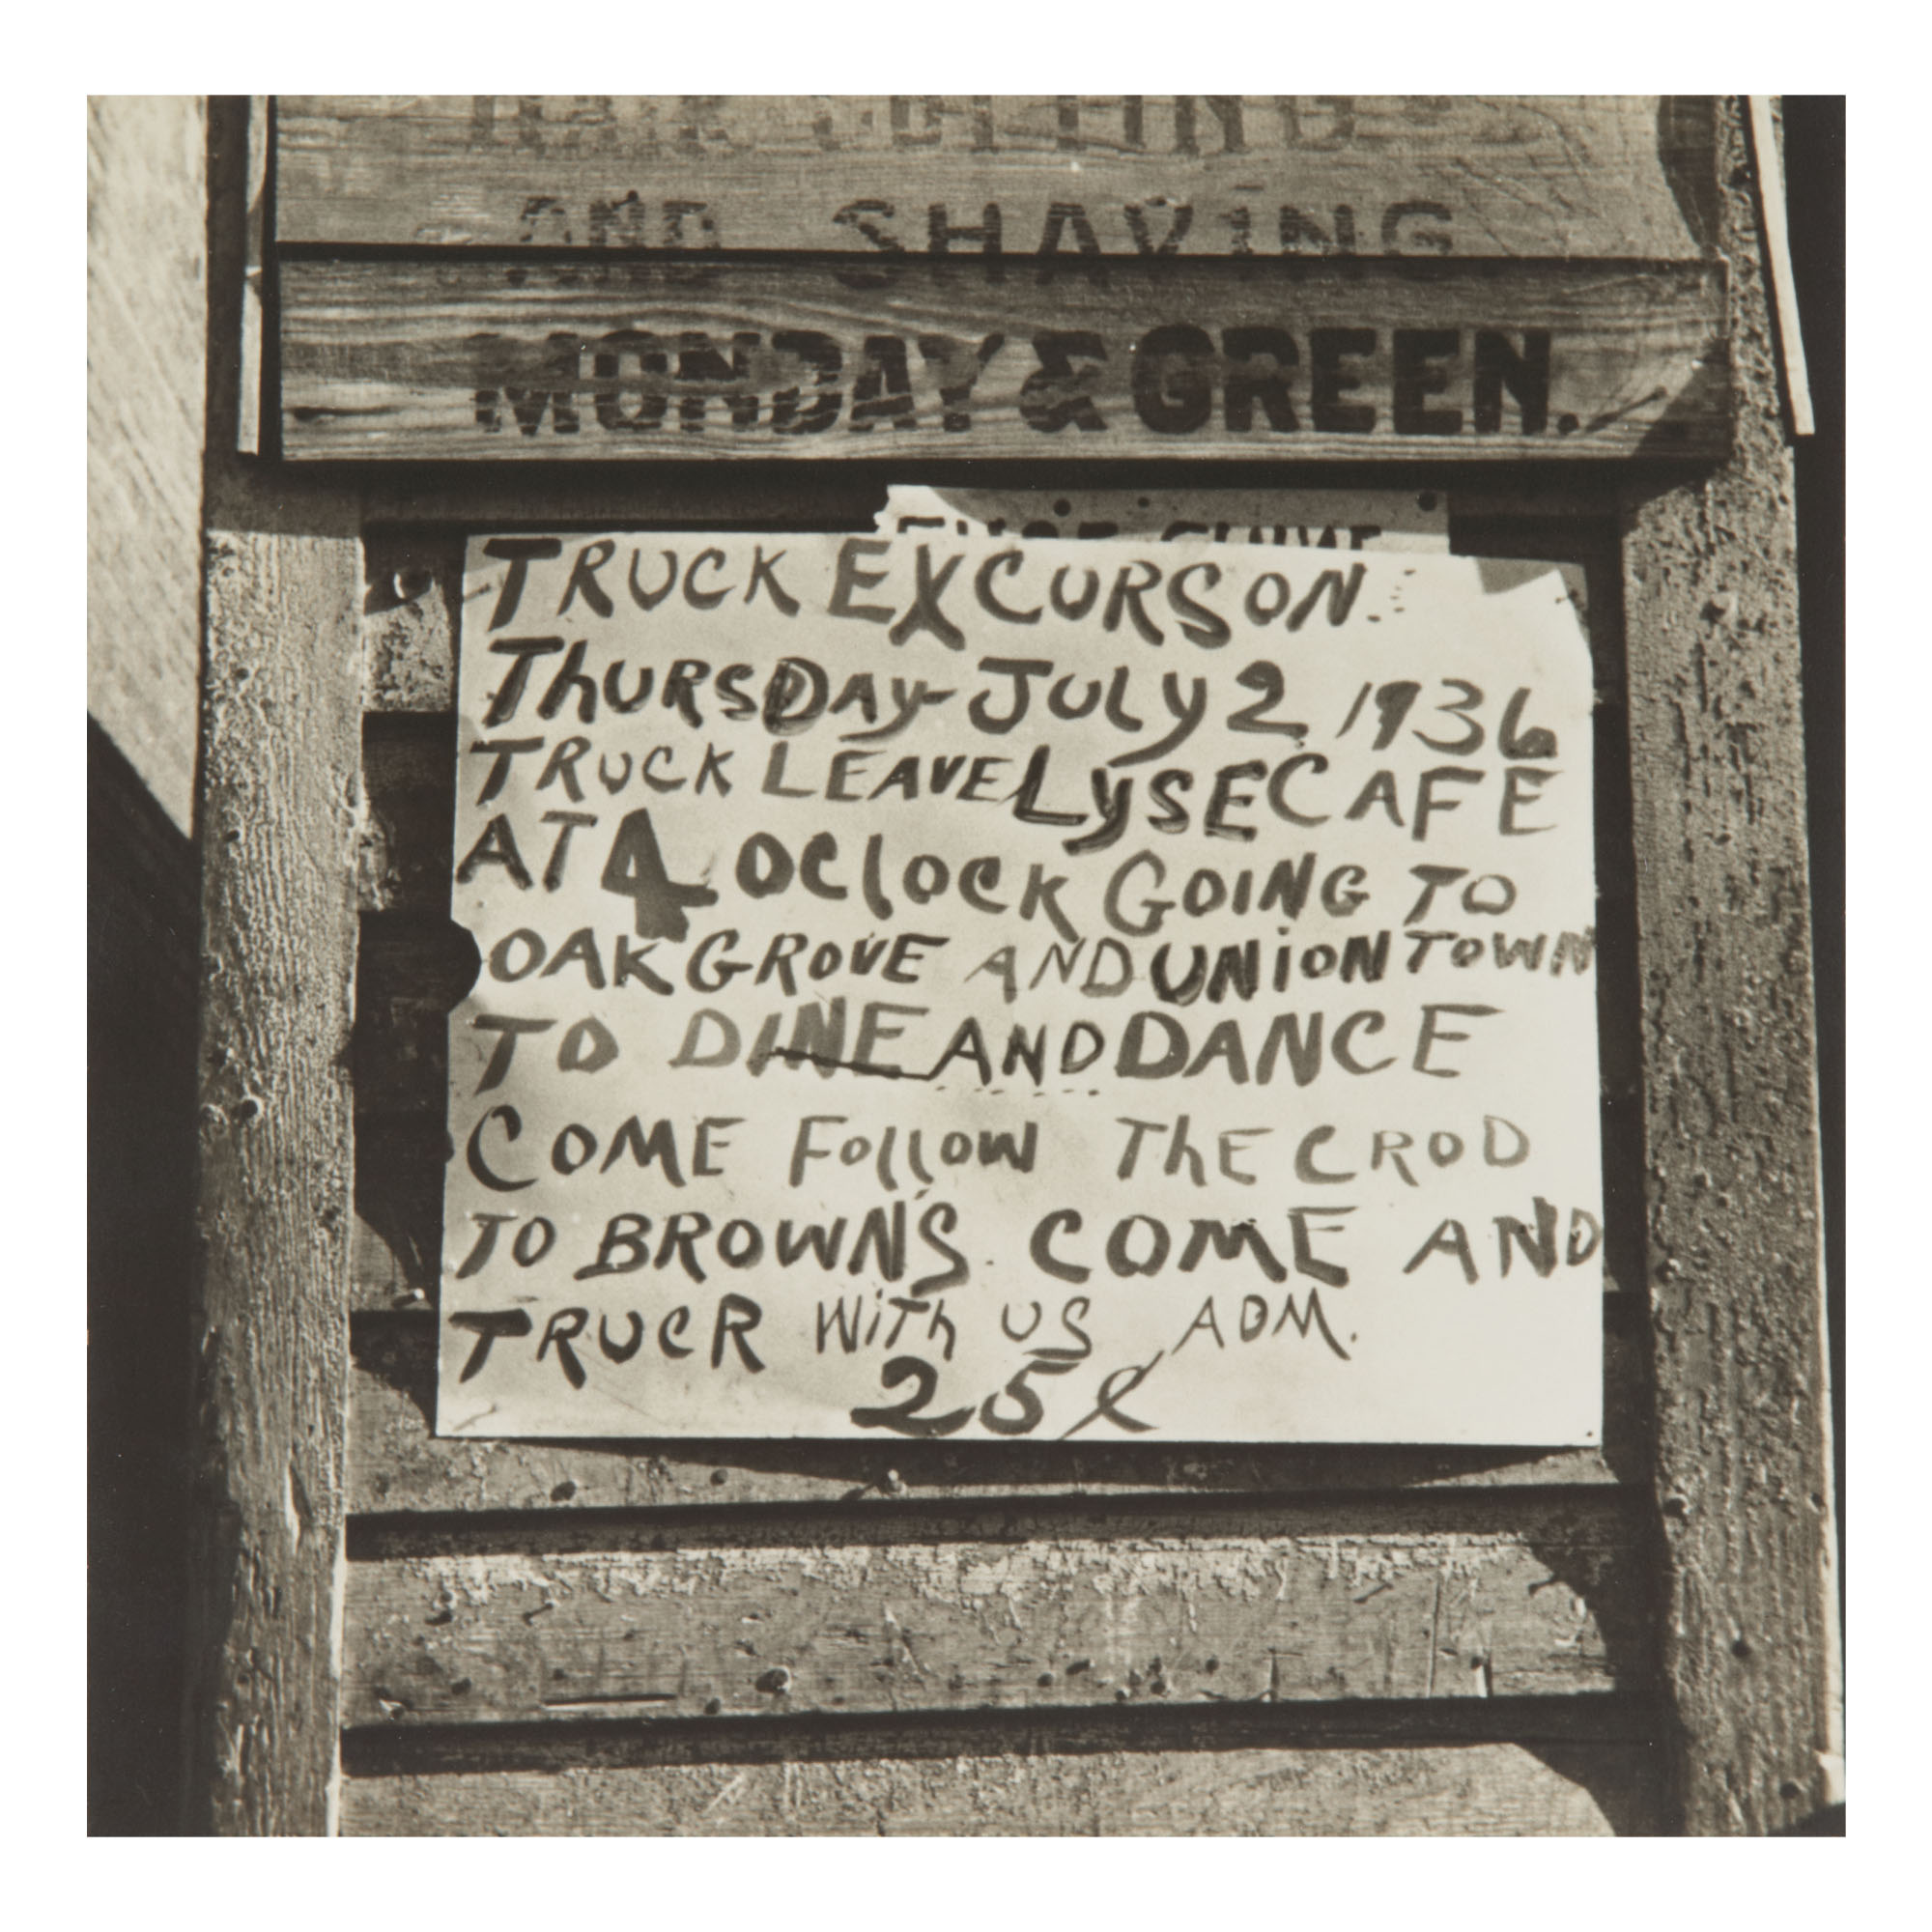 AND SHAVING
MONDAY & GREEN.
TRUCK EXCURSON
THURSDAY-JULY 2 1936
TRUCK LEAVE LYSE CAFE
AT 4 OCLOCK GOING TO
OAK GROVE AND UNION TOWN
TO DINE AND DANCE
COME FOLLOW THE CROD
TO BROWN'S COME AND
TRUCR WITH US ADM.
25¢